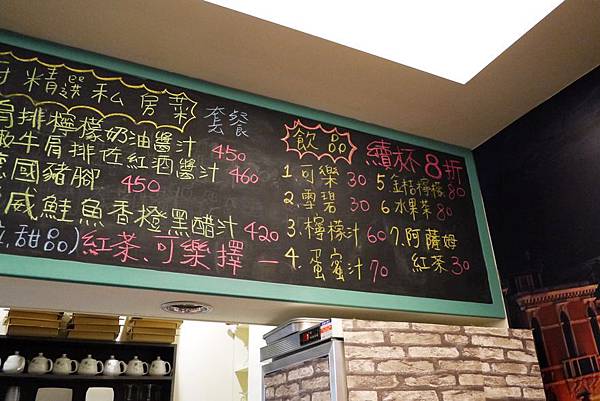 精選私房菜 套餐
肩排檸檬奶油醬汁 450
牛肩排佐紅酒醬汁 460
國豬腳 450
威鮭魚香橙黑醋汁 420
甜品)紅茶、可樂擇一
飲品 續杯8折
1.可樂 30
2.雪碧 30
3.檸檬汁 60
4.蛋蜜汁 70
5.金桔檸檬 80
6.水果茶 80
7.阿薩姆
紅茶 30